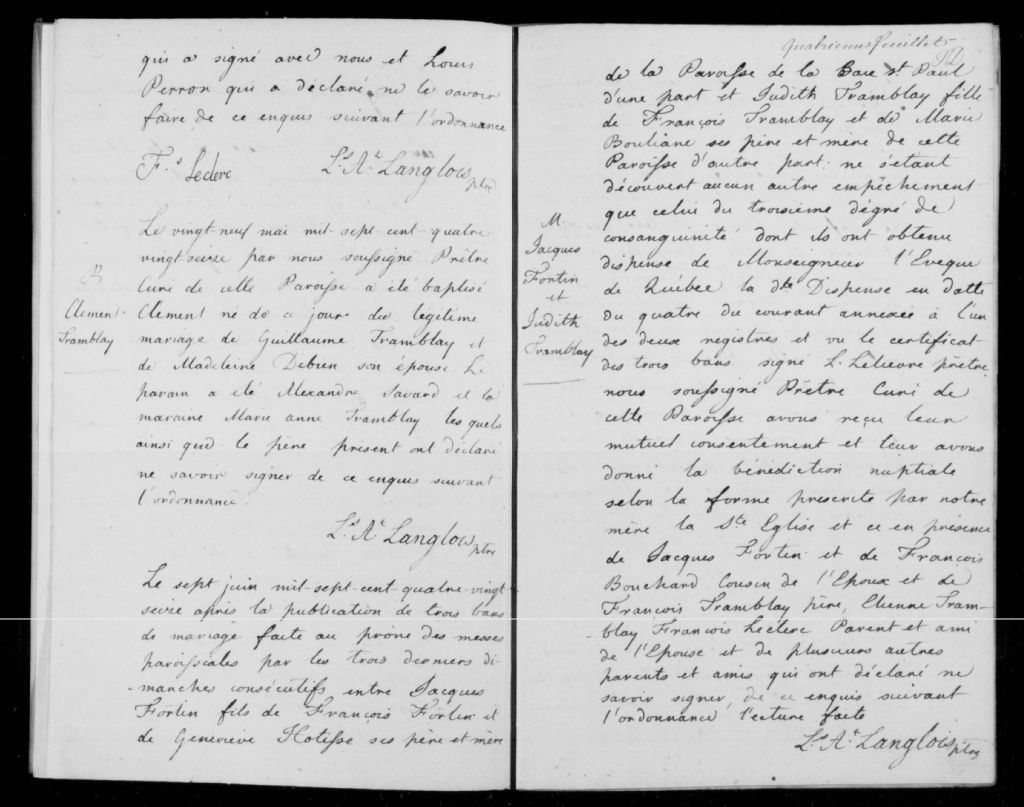 qui a signé avec nous et Louis
Perron qui a déclaré ne le savoir
faire de ce enquis suivant l'ordonnance
F.s Leclerc L.s A.e Langlois ptre
B
Clement
Tramblay
Le vingt neuf mai mil-sept-cent-quatre
vingt-seize par nous soussigné Prêtre
Curé de cette Paroisse a été baptisé
Clement né de ce jour du légitime
mariage de Guillaume Tramblay et
de Madeleine Debien son épouse. Le
parain a été Alexandre Savard et la
maraine Marie anne Tramblay les quels
ainsi que le père présent ont déclaré
ne savoir signer de ce enquis suivant
l'ordonnance
L.s A.e Langlois ptre
Le sept juin mil-sept-cent-quatre-vingt
seize après la publication de trois bans
de mariage faite au prône des messes
paroissiales par les trois derniers di-
manches consécutifs entre Jacques
Fortin fils de François Fortin et
de Geneviève Hotisse ses père et mère
Quatrieme feuillet
de la Paroisse de la Baie St Paul
d'une part et Judith Tramblay fille
de François Tramblay et de Marie
Bouliane ses père et mère de cette
Paroisse d'autre part: ne s'etant
découvert aucun autre empêchement
que celui du troisième dégré de
consanguinité dont ils ont obtenu
dispense de Monseigneur l'Eveque
de Québec la dte Dispense en datte
du quatre du courant annexée à l'un
des deux registres et vu le certificat
des trois bans signé L. Lelievre prêtre,
nous soussigné Prêtre Curé de
cette Paroisse avons reçu leur
mutuel consentement et leur avons
donné la bénédiction nuptiale
selon la forme prescrite par notre
mère la Ste Eglise et ce en présence
de Jacques Fortin et de François
Bouchard Cousin de l'Epoux et de
François Tramblay père, Etienne Tram-
blay François Leclerc Parent et ami
de l'Epouse et de plusieurs autres
parents et amis qui ont déclaré ne
savoir signer, de ce enquis suivant
l'ordonnance lecture faite
L.s A.e Langlois ptre
M.
Jacques
Fortin
et
Judith
Tramblay